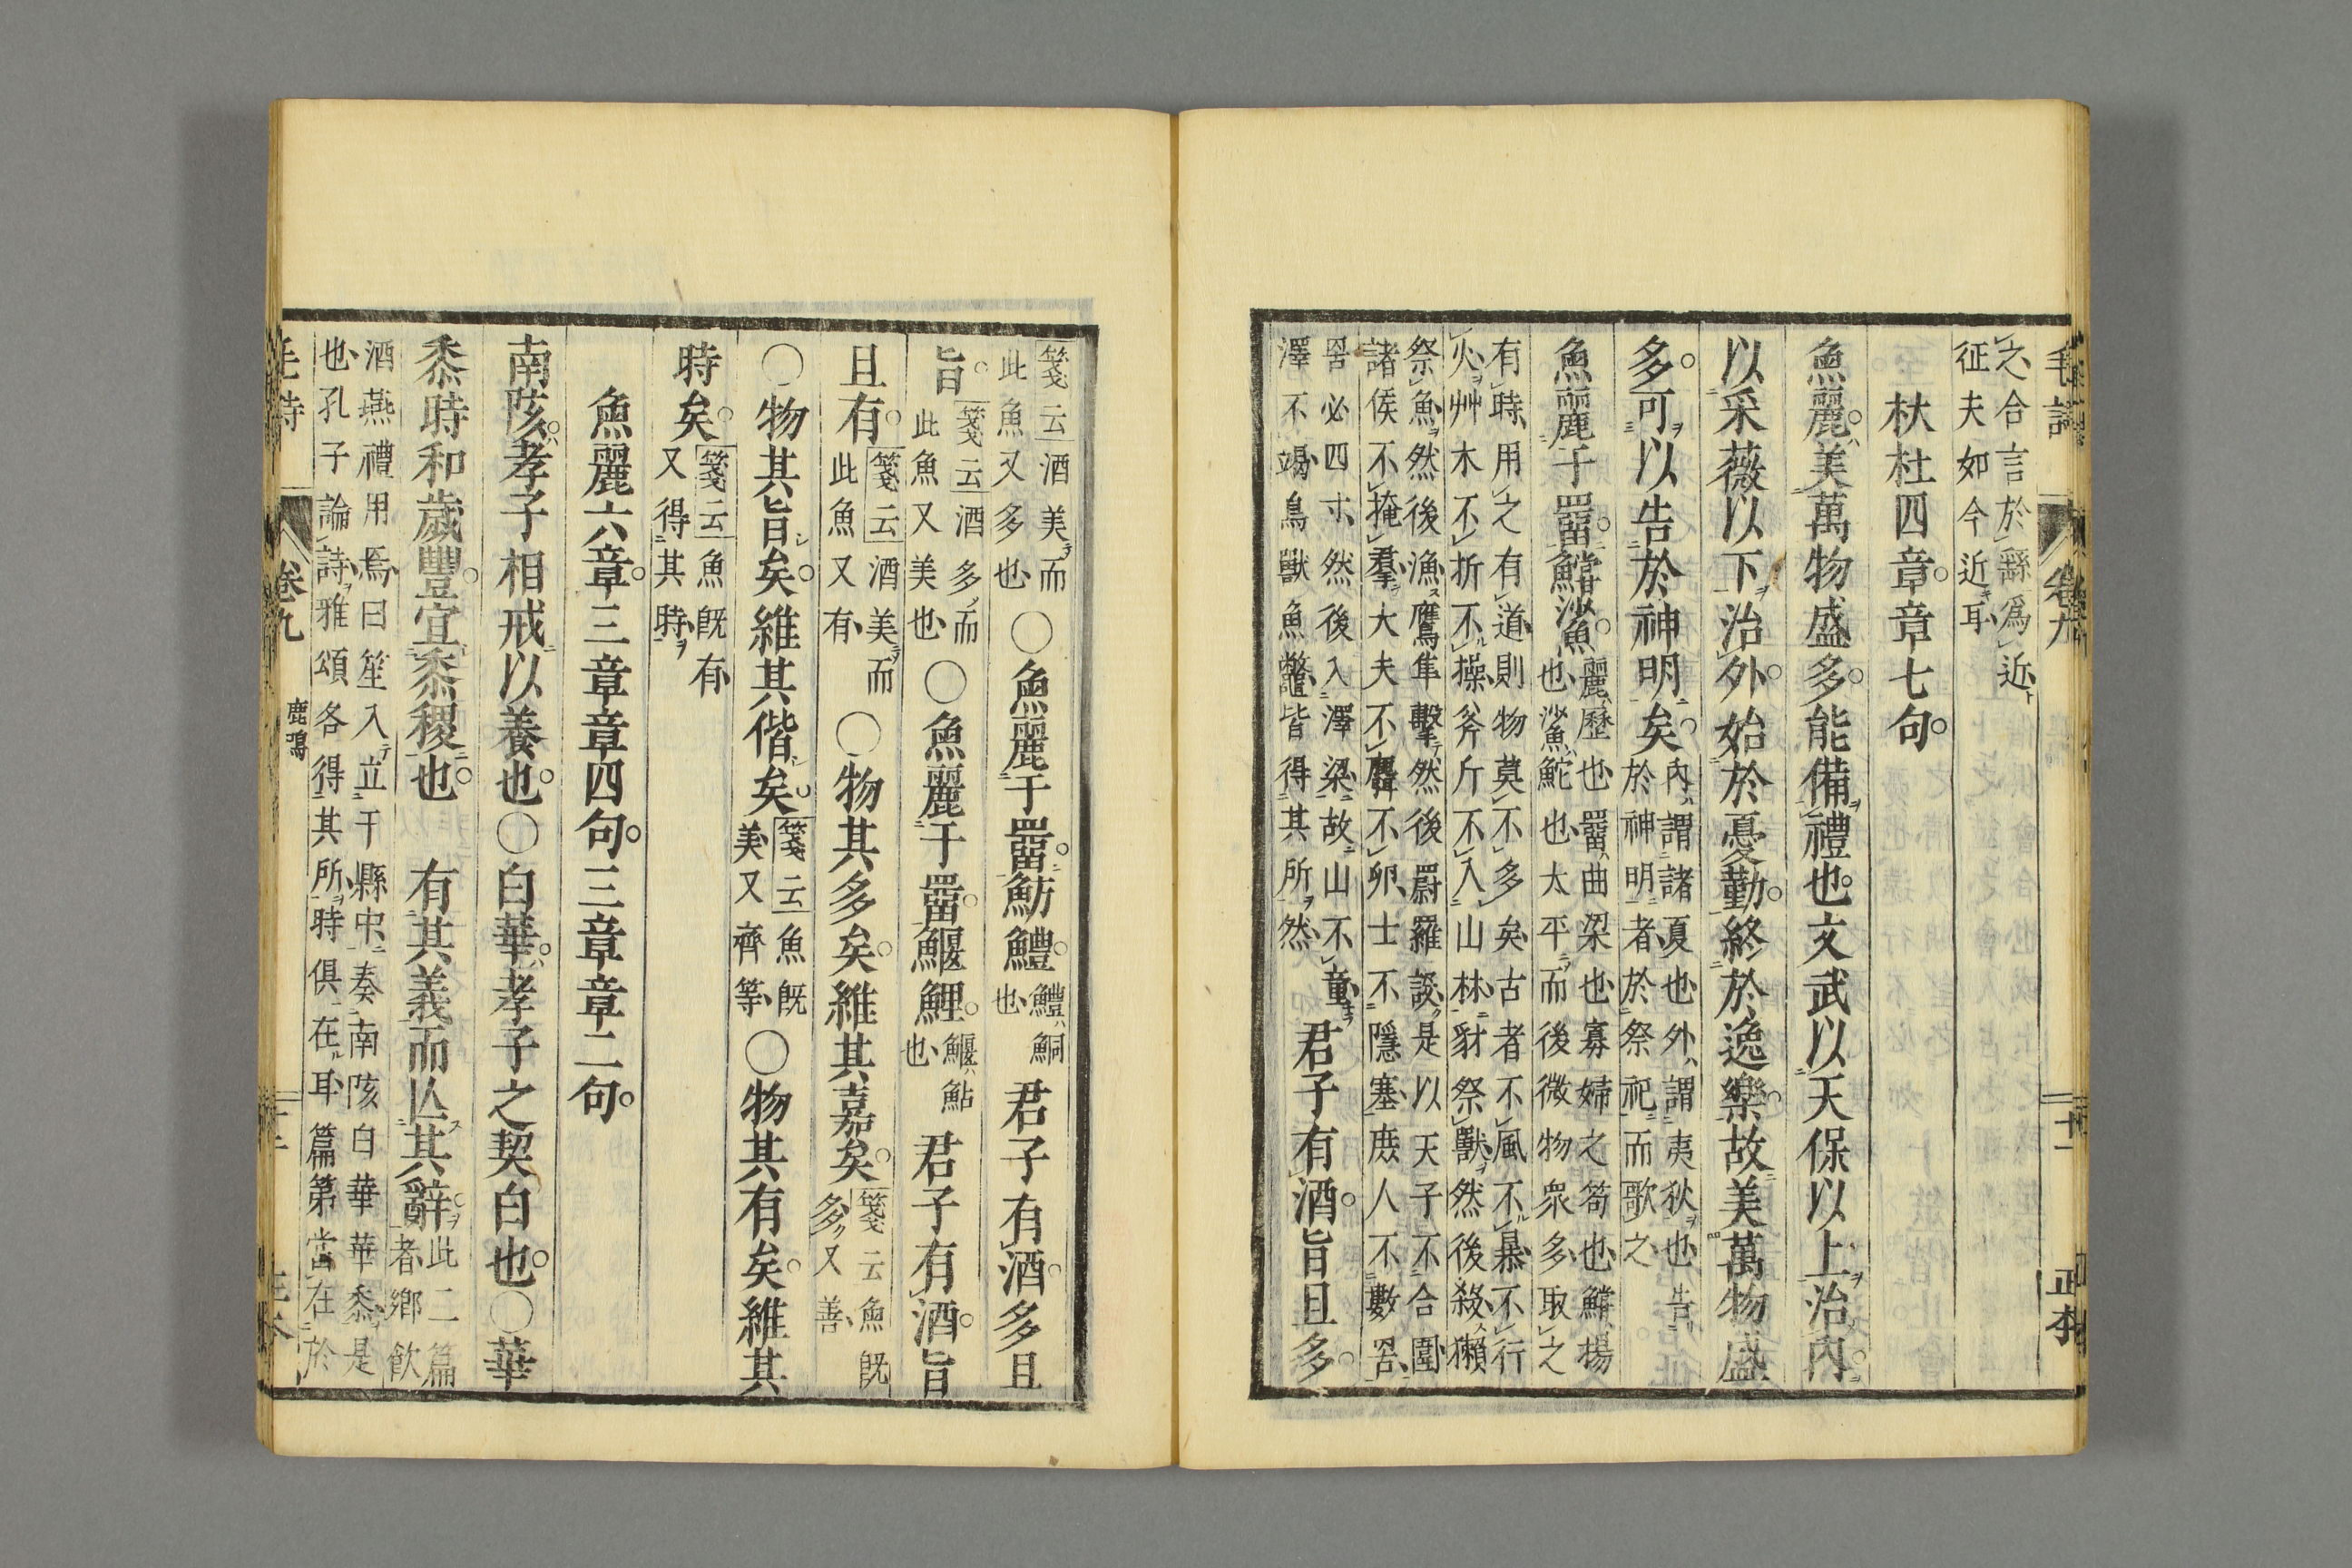 毛詩 卷九 十一 正本
之合言於繇爲近
征夫如今近耳
杕杜四章章七句
魚麗美萬物盛多能備禮也文武以天保以上治內
以采薇以下治外始於憂勤終於逸樂故美萬物盛
多可以告於神明矣
內謂諸夏也外謂夷狄也告
於神明者於祭祀而歌之
魚麗于罶鱨鯊
麗歷也罶曲梁也寡婦之笱也鱨揚
也鯊鮀也太平而後微物眾多取之
有時用之有道則物莫不多矣古者不風不暴不行
火艸木不折不操斧斤不入山林豺祭獸然後殺獺
祭魚然後漁鷹隼擊然後罻羅設是以天子不合圍
諸侯不掩羣大夫不麛不卵士不隱塞庶人不數罟
罟必四寸然後入澤梁故山不童
澤不竭鳥獸魚鼈皆得其所然
君子有酒旨且多
箋云酒美而
此魚又多也
○魚麗于罶魴鱧
鱧鮦
也
君子有酒多且
旨
箋云酒多而
此魚又美也
○魚麗于罶鰋鯉
鰋鮎
也
君子有酒旨
且有
箋云酒美而
此魚又有
○物其多矣維其嘉矣
箋云魚既
多又善
○物其旨矣維其偕矣
箋云魚既
美又齊等
○物其有矣維其
時矣
箋云魚既有
又得其時
魚麗六章三章章四句三章章二句
南陔孝子相戒以養也○白華孝子之契白也○華
黍時和歲豐宜黍稷也 有其義而亾其辭
此二篇
者鄉飲
酒燕禮用焉曰笙入立于縣中奏南陔白華華黍是
也孔子論詩雅頌各得其所時俱在耳篇第當在於
毛詩 卷九 鹿鳴